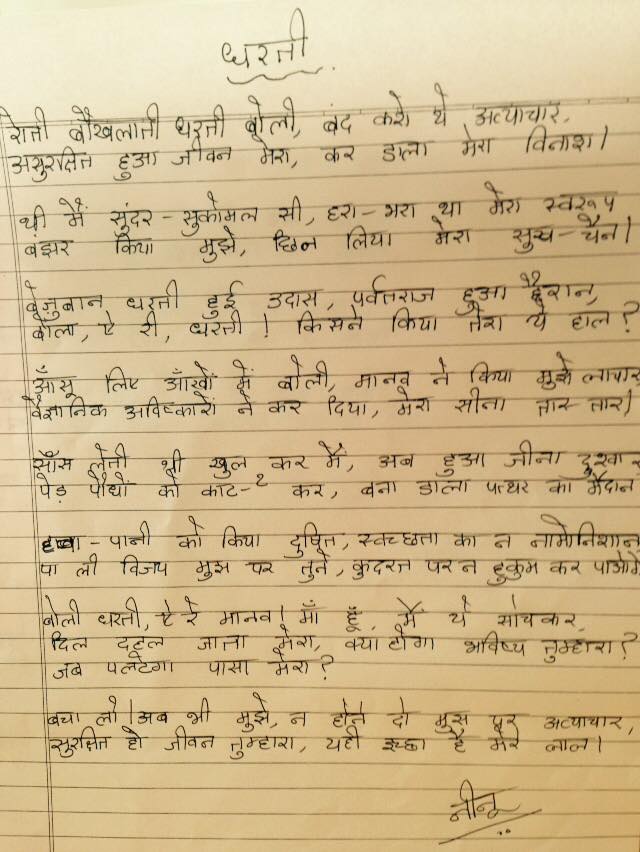 धरती
रोती बौखलाती धरती बोली, बंद करो ये अत्याचार,
असुरक्षित हुआ जीवन मेरा, कर डाला मेरा विनाश।
थी मैं सुंदर-सुकोमल सी, हरा-भरा था मेरा स्वरूप
बंझर किया मुझे, छिन लिया मेरा सुख-चैन।
बेजुबान धरती हुई उदास, पर्वतराज हुआ हैरान,
बोला, ऐ री, धरती! किसने किया तेरा ये हाल?
आँसू लिए आँखों में बोली, मानव ने किया मुझे लाचार
वैज्ञानिक अविष्कारों ने कर दिया, मेरा सीना तार-तार।
साँस लेती थी खुल कर मैं, अब हुआ जीना दुश्वार
पेड़ पौधों को काट-2 कर, बना डाला पत्थर का मैदान
हवा-पानी को किया दुषित, स्वच्छता का न नामोनिशान
पा ली विजय मुझ पर तुने, कुदरत पर न हुकुम कर पाओगे
बोली धरती, ऐ रे मानव! माँ हूँ, मैं ये सोचकर,
दिल दहल जाता मेरा, क्या होगा भविष्य तुम्हारा?
जब पलटेगा पासा मेरा?
बचा लो! अब भी मुझे, न होने दो मुझ पर अत्याचार,
सुरक्षित हो जीवन तुम्हारा, यही इच्छा है मेरे लाल।
नीनू